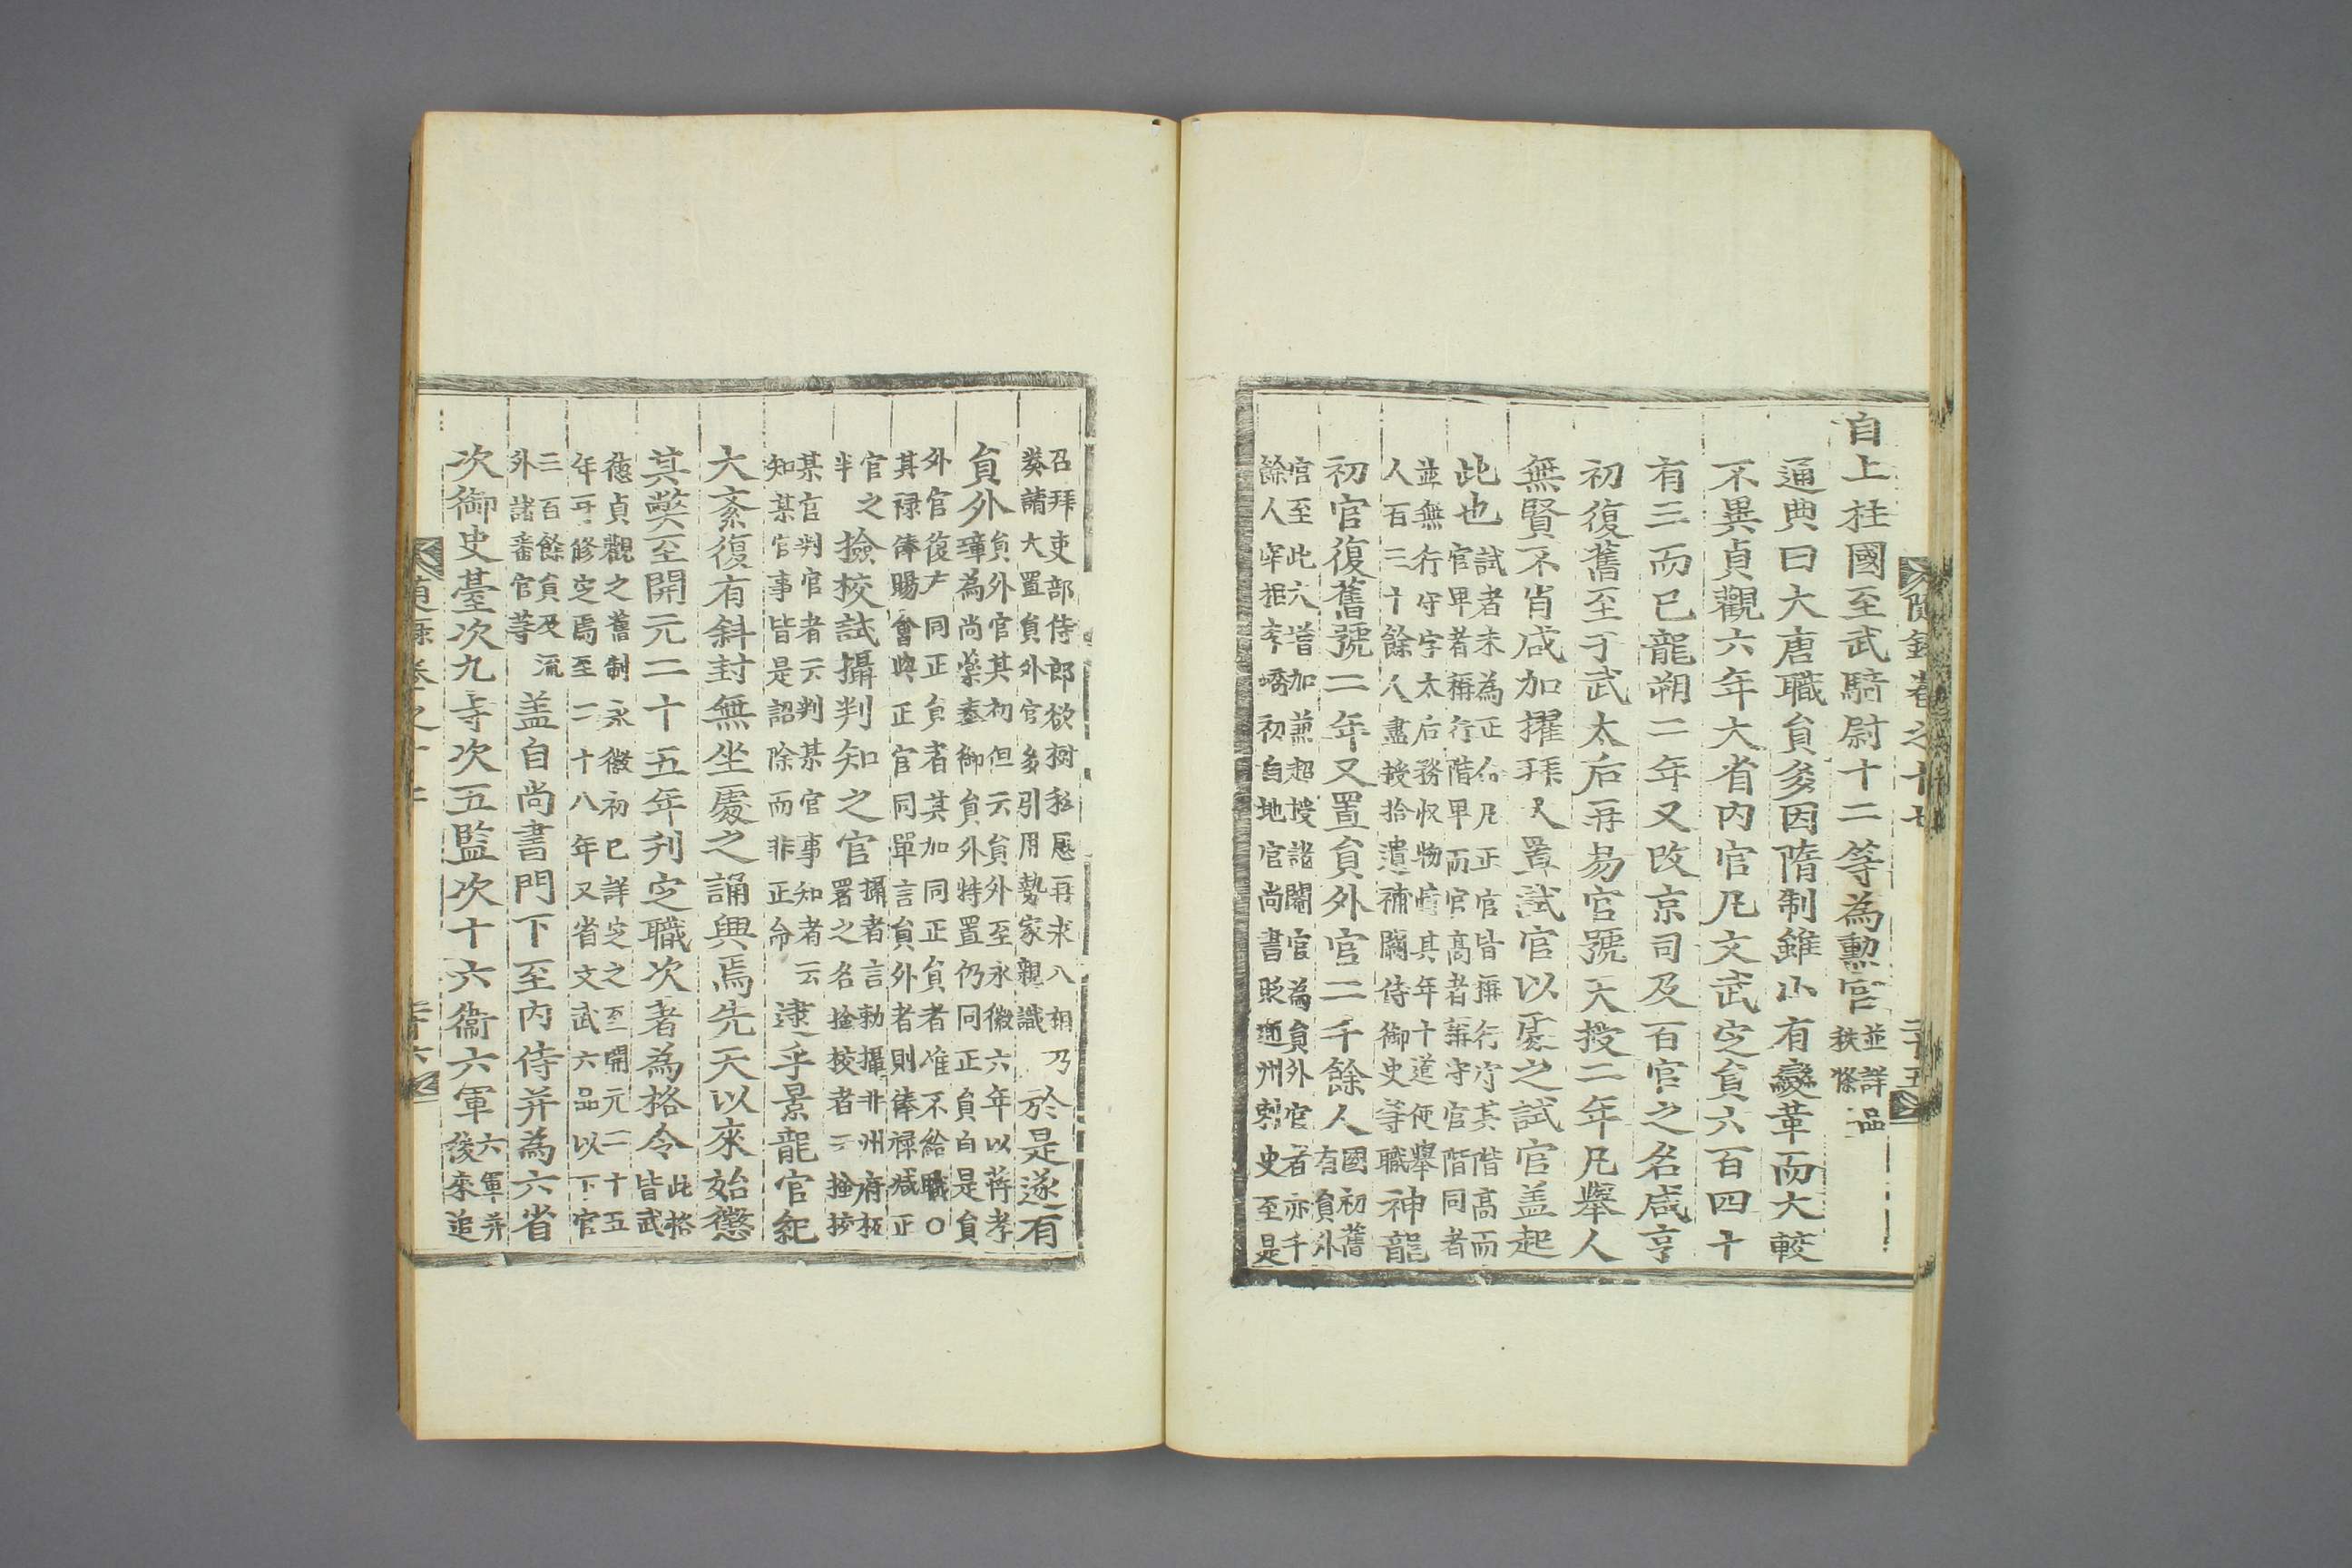 隨錄卷之十七 二十五
自上柱國至武騎尉十二等為勳官
並詳品
秩條
通典曰大唐職貟多因隋制雖小有變革而大較
不異貞觀六年大省內官凡文武定貟六百四十
有三而已龍朔二年又改京司及百官之名咸亨
初復舊至于武太后再易官號天授二年凡舉人
無賢不肖咸加擢拜大置試官以處之試官盖起
此也
試者未為正命凡正官皆稱行守其階高而
官卑者稱行階卑而官高者稱守官階同者
並無行守字太后務收物情其年十道使擧
人百三十餘人盡授拾遺補闕侍御史等職
神龍
初官復舊號二年又置貟外官二千餘人
國初舊
有貟外
官至此大增加兼超授諸閹官為貟外官者亦千
餘人宰相李嶠初自地官尚書貶通州刺史至是
召拜吏部侍郎欲樹私恩再求入相乃
葵請大置貟外官多引用勢家親識
於是遂有
貟外
貟外官其初但云貟外至永徽六年以蒋孝
璋為尚藥奉御貟外特置仍同正貟自是貟
外官復有同正貟者其加同正貟者唯不給職〇
其禄俸賜會與正官同單言貟外者則俸禄减正
官之
半
撿校試攝判知之官
攝者言勑攝非州府板
署之名撿校者云撿挍
某官判官者云判某官事知者云
知某官事皆是詔除而非正命
逮乎景龍官紀
大紊復有斜封無坐處之誦興焉先天以來始懲
其獘至開元二十五年刋定職次著為格令
此格
皆武
德貞觀之舊制永徽初已詳定之至開元二十五
年再修定焉至二十八年又省文武六品以下官
三百餘貟及流
外諸番官等
盖自尚書門下至內侍并為六省
次御史臺次九寺次五監次十六衞六軍
六軍并
後來追